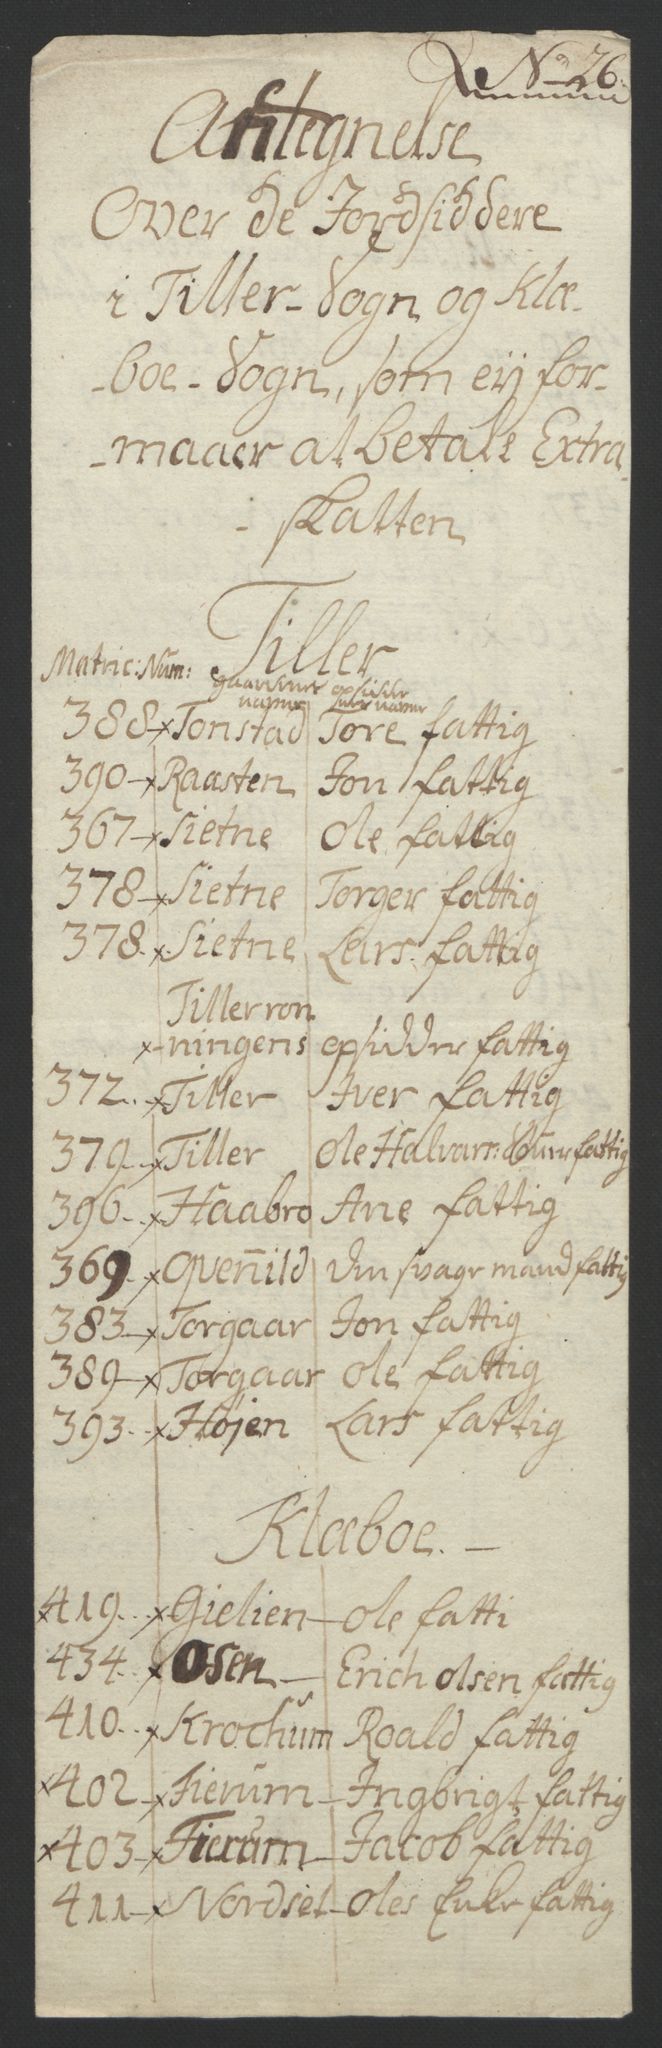 No 26.
Antegnelse
Over de Jordsiddere
i Tiller-Sogn og Klæ-
-boe-Sogn, som eij for-
-maaer at betale Extra-
- skatten
Tiller
Matric: Num: gaardenes navne opsidder
nes navne
388 x Tonstad Tore fattig
390 x Raasten Jon fattig
367 x Sietne Ole fattig
378 x Sietne Torger fattig
378. x Sietne Lars fattig
Tiller ron
x ningens opsidder fattig
372. x Tiller Iver fattig
379 x Tiller Ole Halvars: fattig
396. x Haabro Ane fattig
369. x Qvenild Den svage mand fattig
383 x Torgaar Jon fattig
389 x Torgaar Ole fattig
393. x Højen Lars fattig
Klæboe. -
x 419. x Gielien - ole fatti
434. x Osen - Erich olsen fattig
410. x Krochum Roald fattig
x 402 x Fierum - Ingbrigt fattig
x 403 x Fierum - Jacob fattig
411 x Nordset - oles Enke fattig